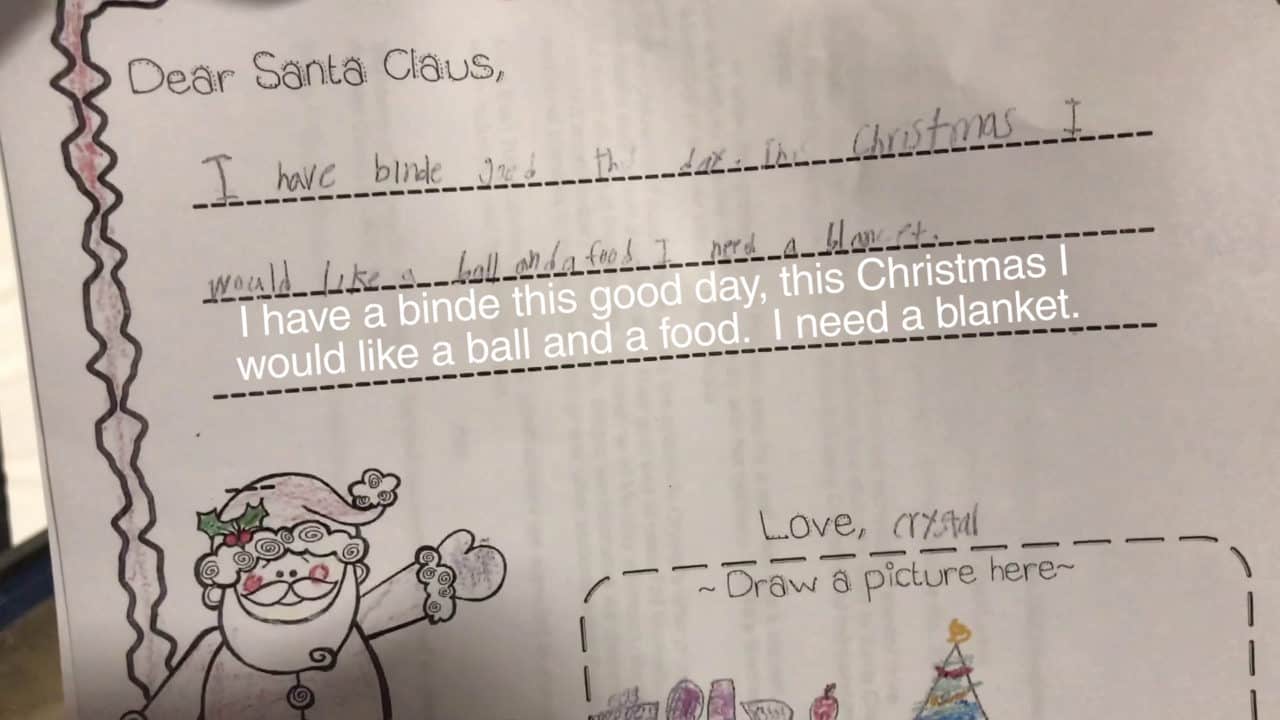 Dear Santa Claus,
I have binde good this day. this Christmas I
would like a ball and a food I need a blancet.
I have a binde this good day, this Christmas I
would like a ball and a food. I need a blanket.
Love, crystal
~Draw a picture here~